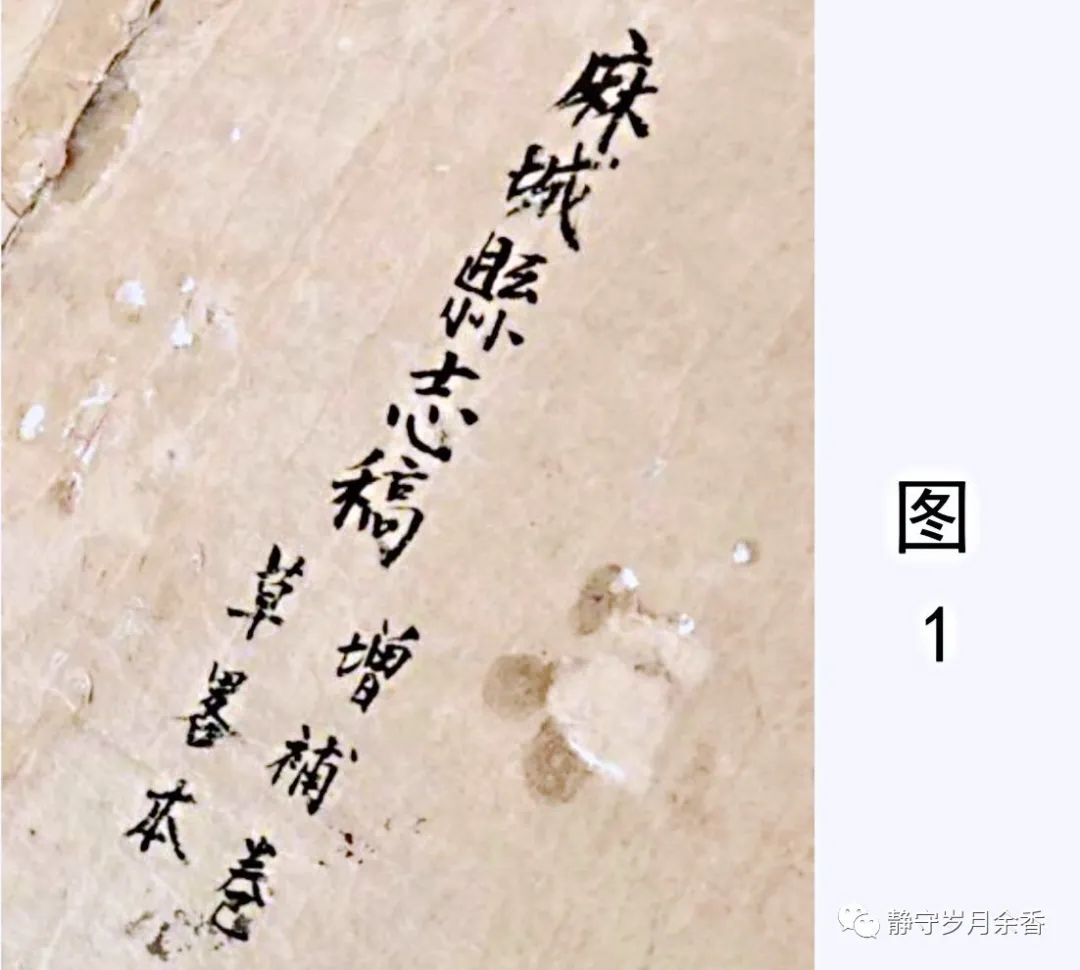 麻城縣志稿
增補卷
草畧本
图
1
静守岁月余香